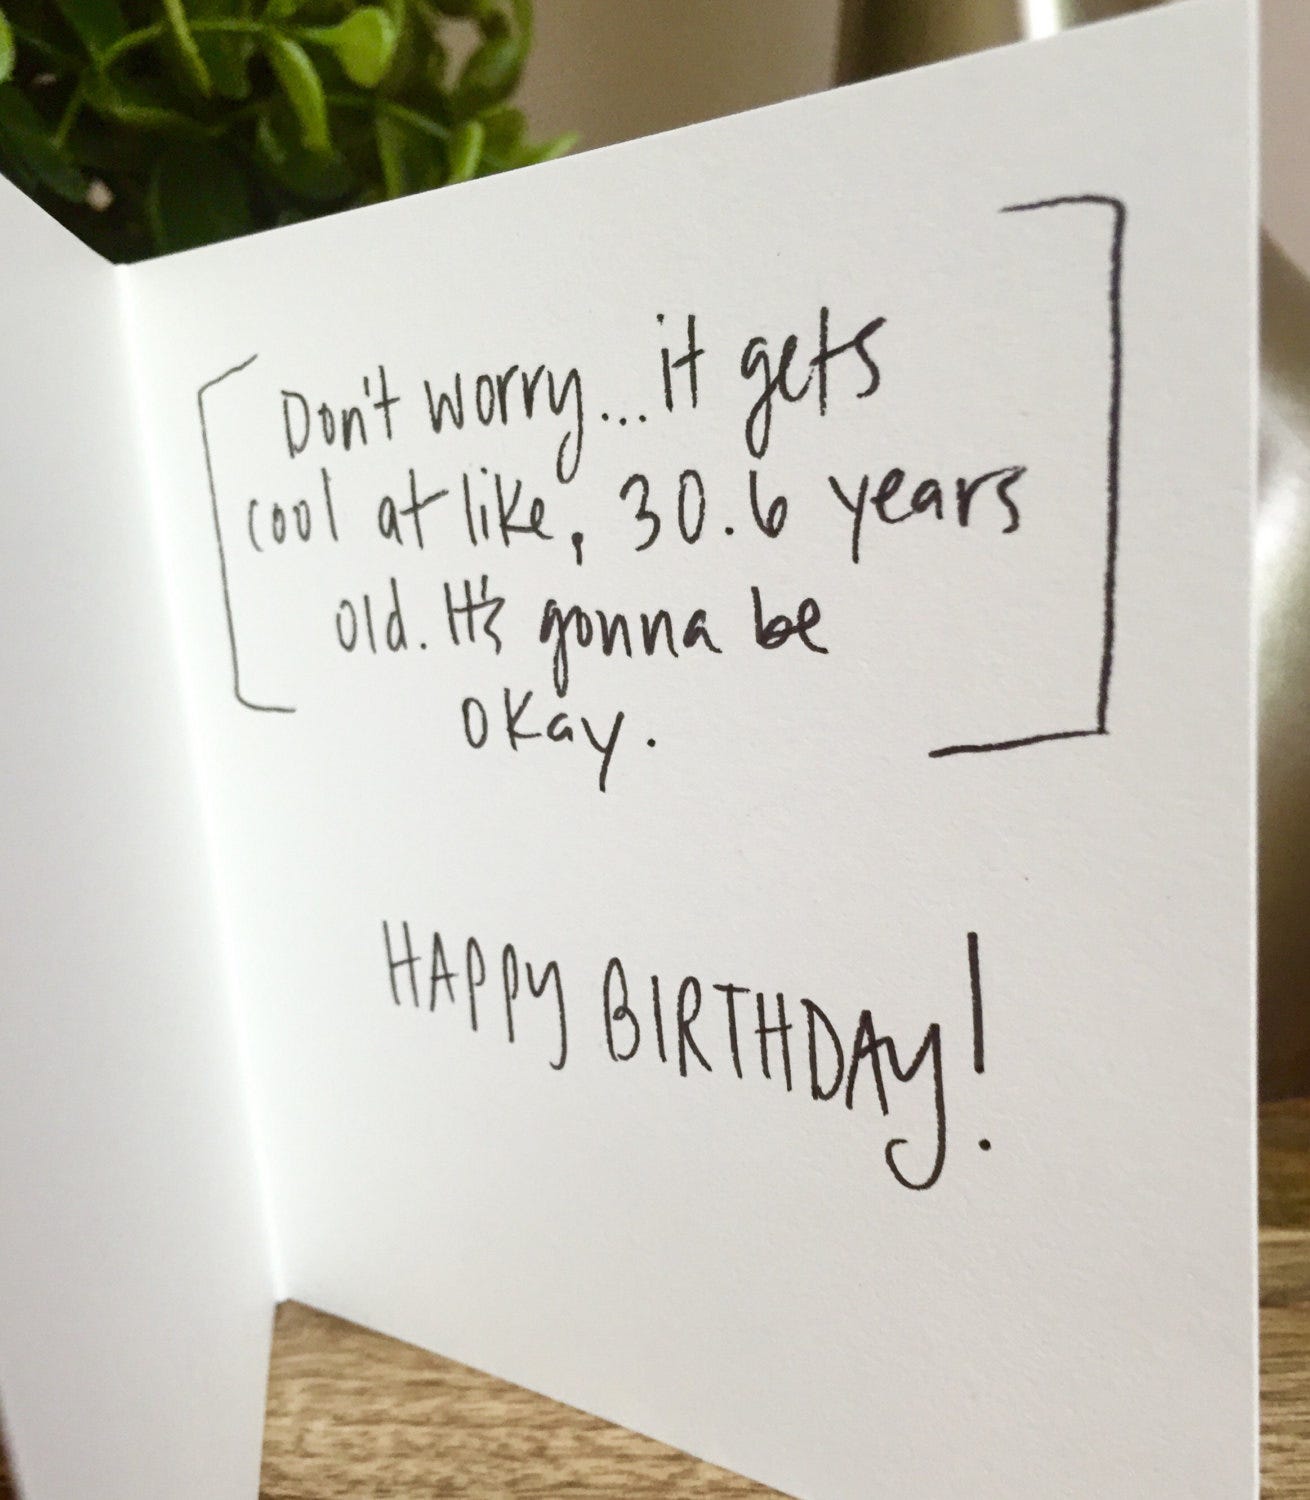 Don't worry...it gets
cool at like, 30.6 years
old. It's gonna be
okay.
HAPPY BIRTHDAY!